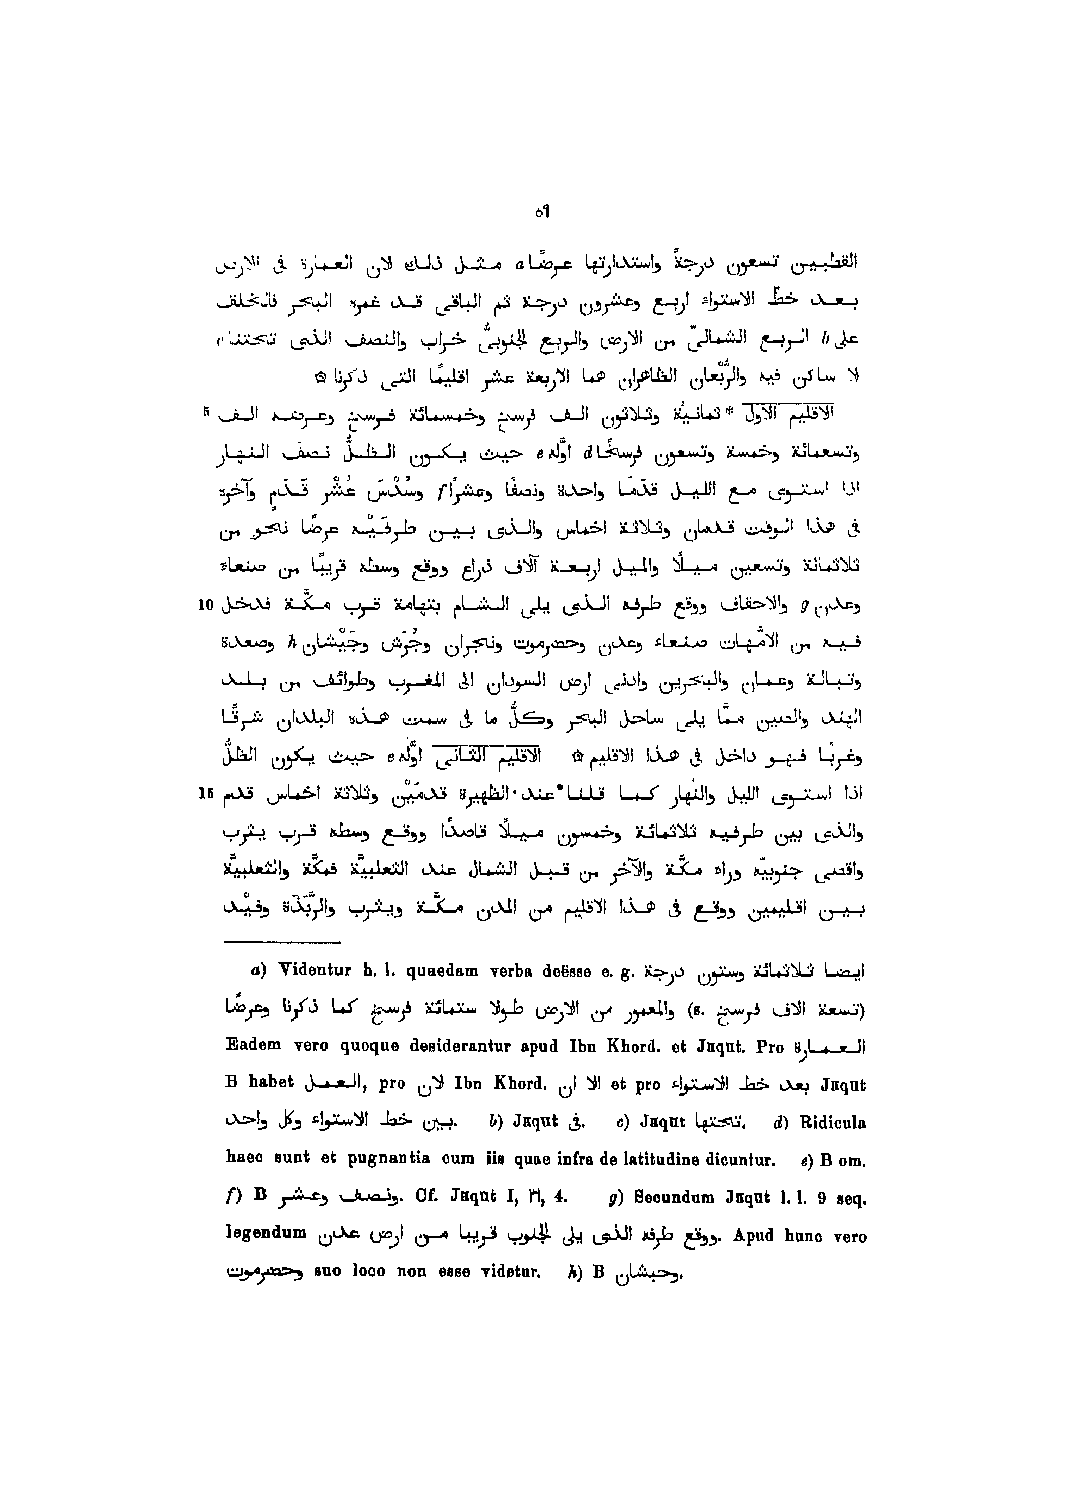 ٥٩
القطبين تسعون درجةً واستدارتها عرضًا a مثل ذلك لان العمارة فى الارض
بعد خطّ الاستواء اربع وعشرون درجة ثم الباقى قد غمره البحر فالخلف
على b الربع الشمالىّ من الارض والربع الجنوبىُّ خراب والنصف الذى تحتنا c
لا ساكن فيه والرُّبْعان الظاهران هما الاربعة عشر اقليمًا التى ذكرنا ۞
الاقليم الاوّل * ثمانيةٌ وثلاثون الف فرسخ وخمسمائة فرسخ وعرضه الف 5
وتسعمائة وخمسة وتسعون فرسخًا d اوّله e حيث يكون الظلُّ نصف النهار
اذا استوى مع الليل قدمًا واحدة ونصفًا وعشرًا f وسُدْسَ عُشْرِ قَدَمٍ وآخره
فى هذا الوقت قدمان وثلاثة اخماس والذى بين طرفَيْه عرضًا نحو من
ثلاثمائة وتسعين ميلًا والميل اربعة آلاف ذراع ووقع وسطه قريبًا من صنعاء
وعدن g والاحقاف ووقع طرفه الذى يلى الشام بتهامة قرب مكّة فدخل 10
فيه من الامّهات صنعاء وعدن وحضرموت ونجران وجُرَش وجَيْشان h وصعدة
وتبالة وعمان والبحرين وادنى ارض السودان الى المغرب وطوائف من بلد
الهند والصين ممّا يلى ساحل البحر وكلُّ ما فى سمت هذه البلدان شرقًا
وغربًا فهو داخل فى هذا الاقليم ۞ الاقليم الثانى اوّله e حيث يكون الظلُّ
اذا استوى الليل والنهار كما قلنا * عند الظهيرة * قدمَيْن وثلاثة اخماس قدم 15
والذى بين طرفيه ثلاثمائة وخمسون ميلًا قاصدًا ووقع وسطه قرب يثرب
واقصى جنوبيّه وراء مكّة والآخر من قبل الشمال عند الثعلبيّة فمكّة والثعلبيّة
بين اقليمين ووقع فى هذا الاقليم من المدن مكّة ويثرب والرَّبَذة وفَيْد
a) Videntur h. l. quaedam verba deësse e. g. ايضا ثلاثمائة وستون درجة
(تسعة الاف فرسخ .s) والمعمور من الارض طولا ستمائة فرسخ كما ذكرنا وعرضًا
Eadem vero quoque desiderantur apud Ibn Khord. et Jaqut. Pro العمارة
B habet العمل, pro لان Ibn Khord. الا ان et pro بعد خط الاستواء Jaqut
بين خط الاستواء وكل واحد. b) Jaqut فى. c) Jaqut تحتها. d) Ridicula
haec sunt et pugnantia cum iis quae infra de latitudine dicuntur. e) B om.
f) B ونصف وعشر. Cf. Jaqut I, ٢٩, 4. g) Secundum Jaqut l. l. 9 seq.
legendum ووقع طرفه الذى يلى الجنوب قريبا من ارض عدن. Apud hunc vero
وحضرموت suo loco non esse videtur. h) B وحبشان.